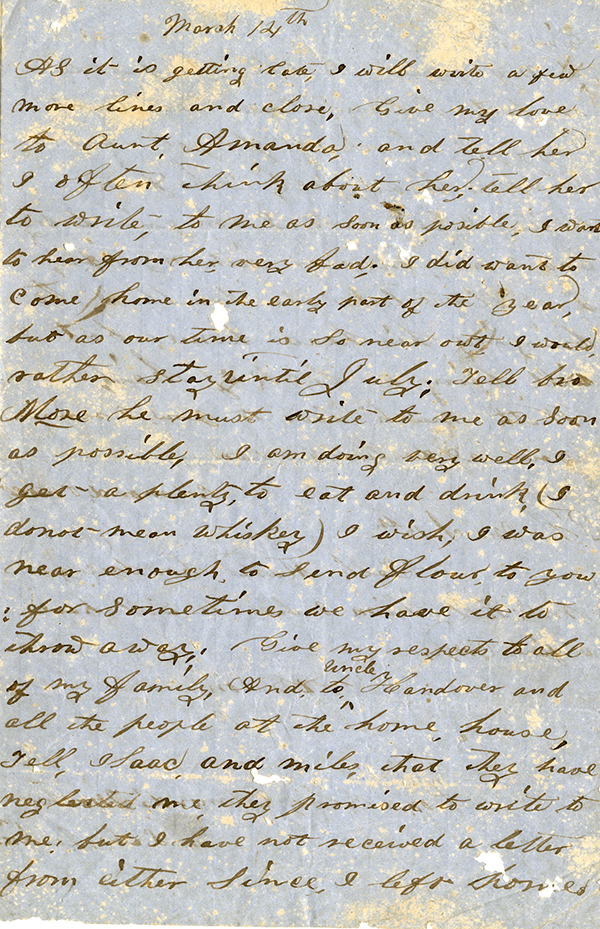 March 12th
As it is getting late, I will write a few
more lines and close, Give my love
to Aunt, Amanda, and tell her
I often think about her, tell her
to write, to me as soon as posible, I want
to hear from her very bad. I did want to
come home in the early part of the year,
but as our time is so near out, I would,
rather stay until July; Tell bro
Mose he must write to me as soon
as possible, I am doing very well, I
get a plenty, to eat and drink, (I
donot mean whiskey) I wish, I was
near enough, to send flour, to you
: for sometimes we have it to
throw away; Give my respects to all
of my family, And, to, uncle Handover and
all the people at the home, house,
Tell, Isaac, and miles, that they have
neglected me, they promised to write to
me; but I have not received a letter
from either since, I left home